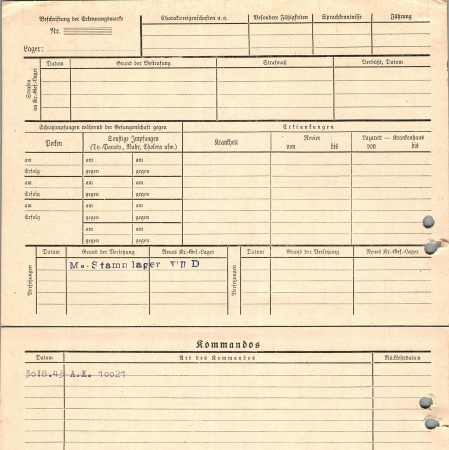 Beschriftung der Erkennungsmarke
Nr.
Lager:
Charaktereigenschaften u. a.
Besondere Fähigkeiten
Sprachkenntnisse
Führung
Strafen im Kr.-Gef.-Lager
Datum
Grund der Bestrafung
Strafmaß
Verbüßt, Datum
Schutzimpfungen während der Gefangenschaft gegen
Erkrankungen
Pocken
Sonstige Impfungen
(Ty.-Paraty., Ruhr, Cholera usw.)
Krankheit
Revier
von bis
Lazarett — Krankenhaus
von bis
am am am
Erfolg gegen gegen
am am am
Erfolg gegen gegen
am am am
Erfolg gegen gegen
am am
gegen gegen
Versetzungen
Datum
Grund der Versetzung
Neues Kr.-Gef.-Lager
Versetzungen
Datum
Grund der Versetzung
Neues Kr.-Gef.-Lager
Stammlager VII D
Kommandos
Datum
Art des Kommandos
Rückkehrdatum
A.K. 10021